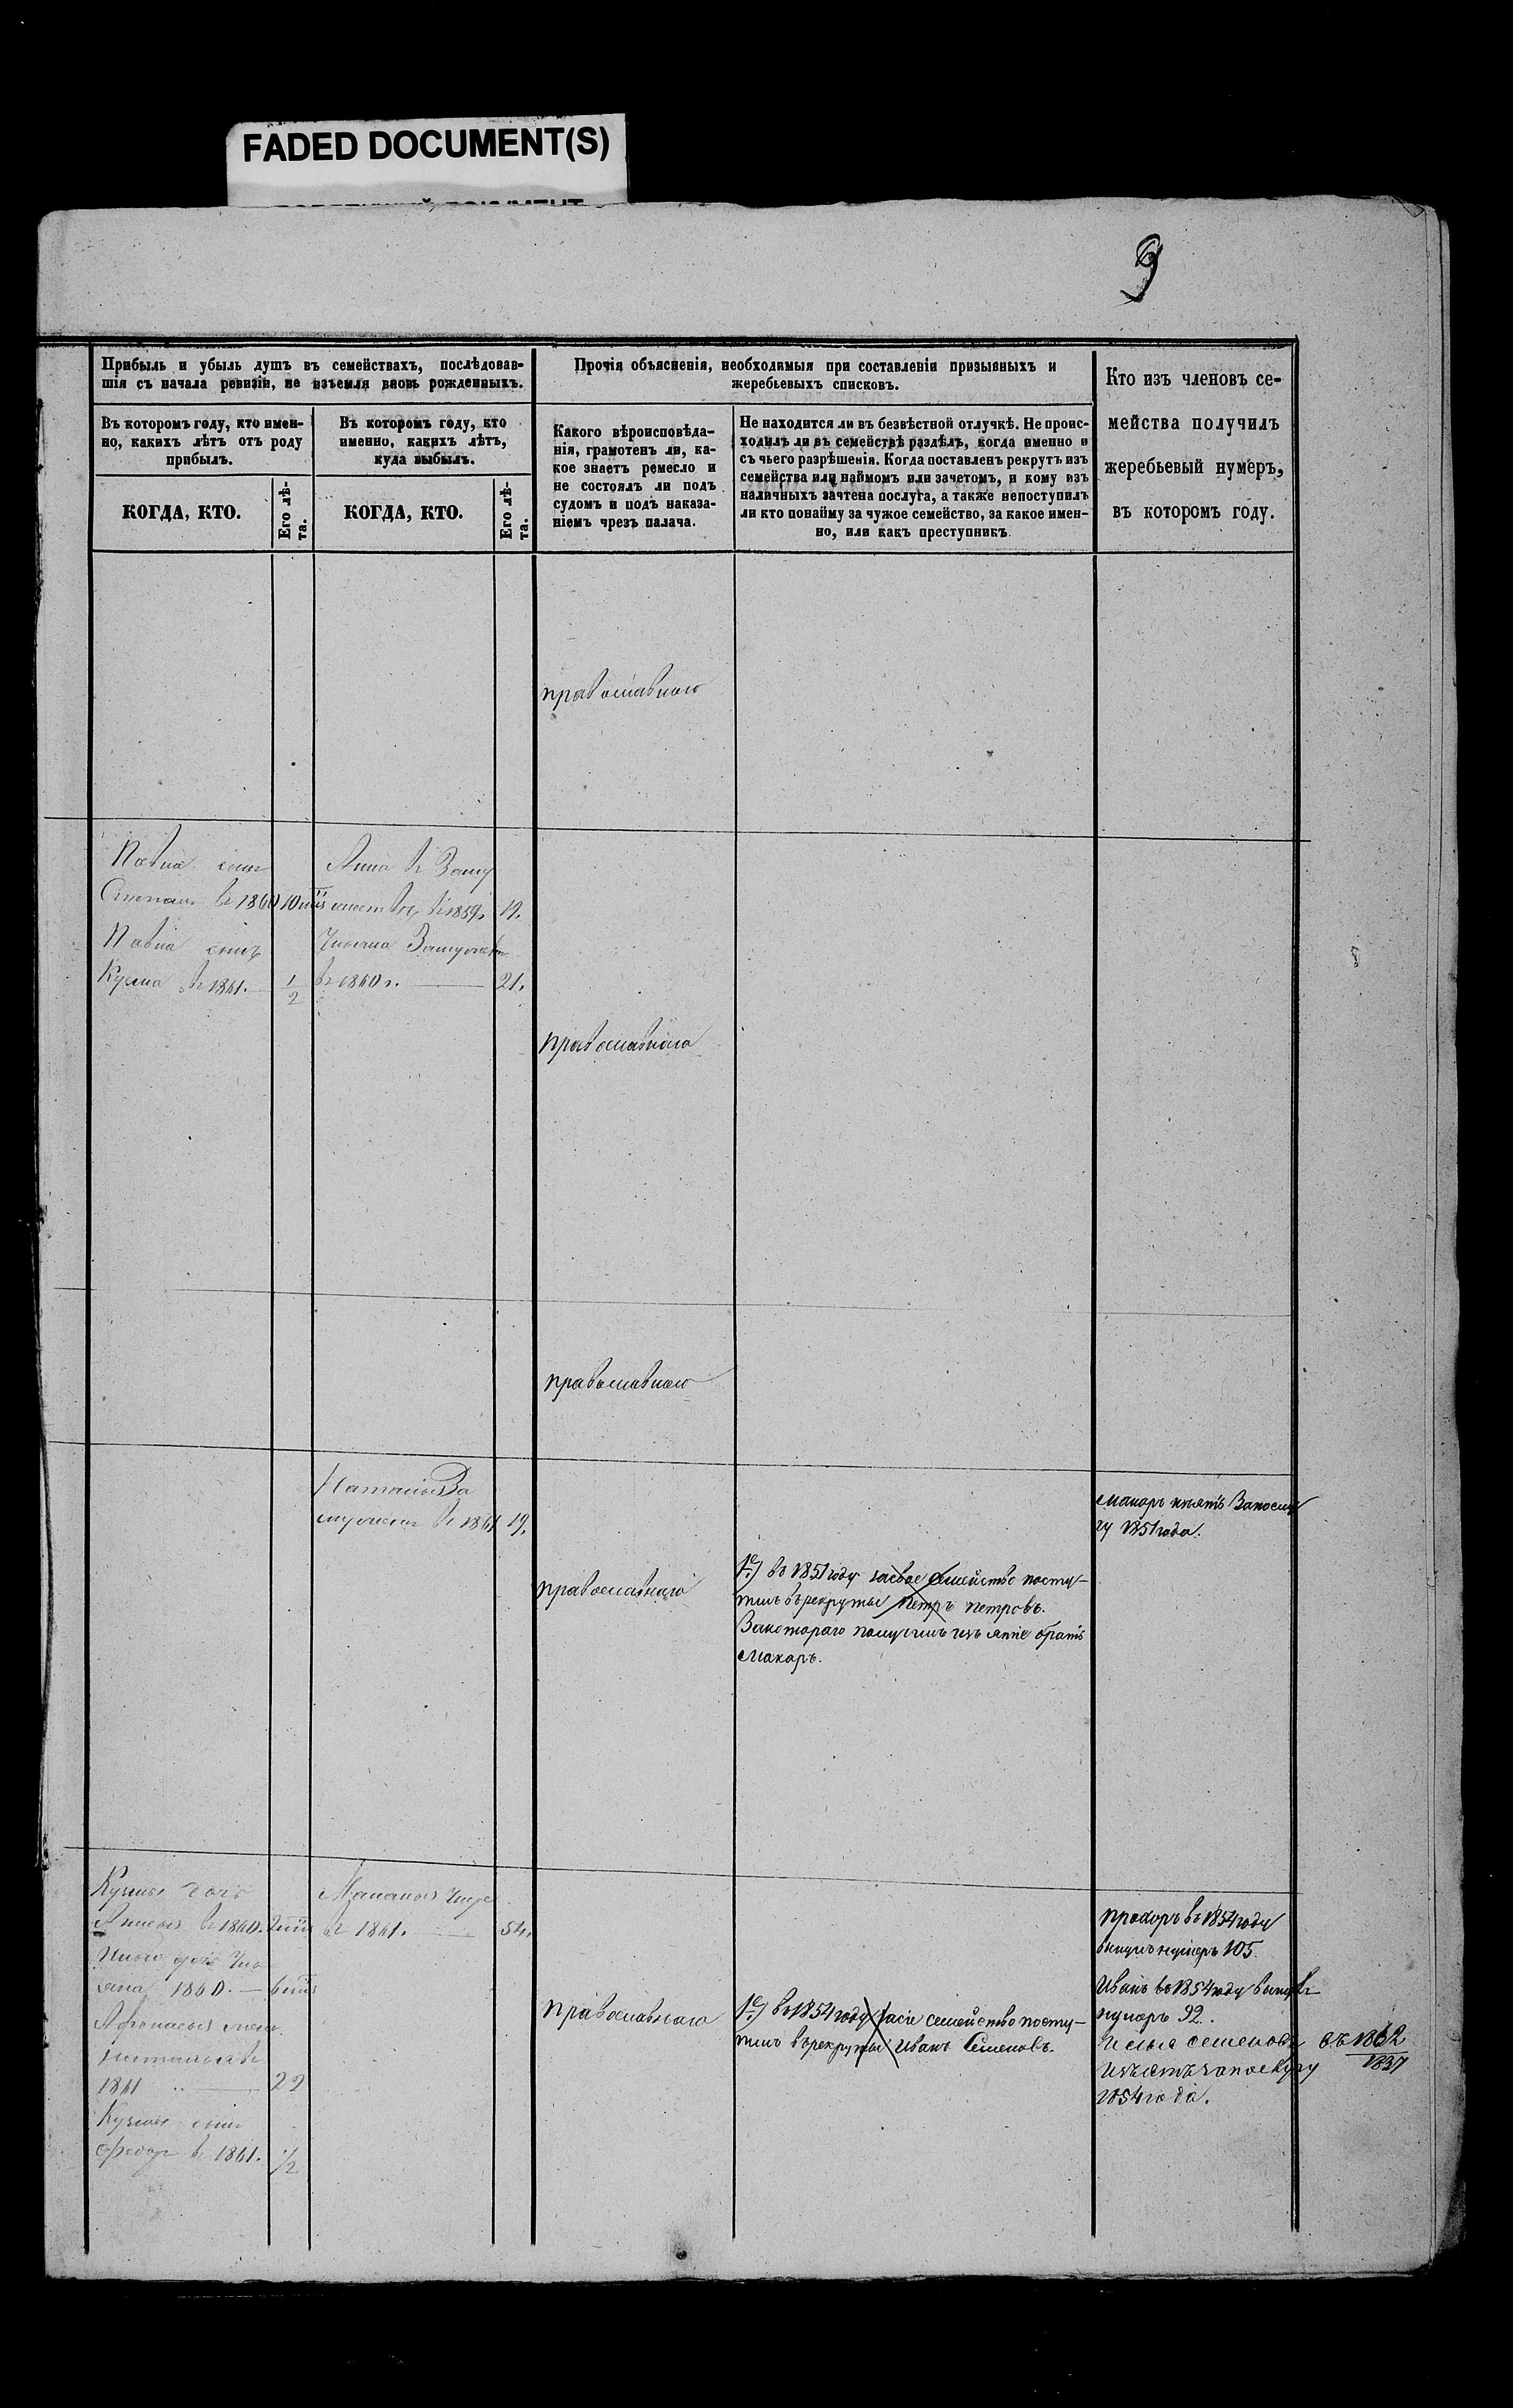 FADED DOCUMENT(S)
9
Прибыль и убыль душъ въ семействахъ, послѣдовав-
шія съ начала ревизіи, не изъемля вновь рожденныхъ.
Въ которомъ году, кто имен-
но, какихъ лѣтъ отъ роду
прибылъ.
КОГДА, КТО.
Его лѣ-
та.
Въ которомъ году, кто
именно, какихъ лѣтъ,
куда выбылъ.
КОГДА, КТО.
Его лѣ-
та.
Прочія объясненія, необходимыя при составленіи призывныхъ и
жеребьевыхъ списковъ.
Какого вѣроисповѣда-
нія, грамотенъ ли, ка-
кое знаетъ ремесло и
не состоялъ ли подъ
судомъ и подъ наказа-
ніемъ чрезъ палача.
Не находится ли въ безвѣстной отлучкѣ. Не проис-
ходилъ ли въ семействѣ раздѣлъ, когда именно и
съ чьего разрѣшенія. Когда поставленъ рекрутъ изъ
семейства или наймомъ или зачетомъ, и кому изъ
наличныхъ зачтена послуга, а также непоступилъ
ли кто понайму за чужое семейство, за какое имен-
но, или какъ преступникъ
Кто изъ членовъ се-
мейства получилъ
жеребьевый нумеръ,
въ которомъ году.
православнаго
Павла сынъ
Степанъ въ 1860 10
Павла сынъ
Кузма въ 1861. 1/2
Анна въ Заму
въ 1859. 19.
Замужъ
въ 1860 г. 21.
православнаго
православнаго
Наталья За
мужъ въ 1861 19.
православнаго
1е) въ 1851 году засвое семейство посту-
пилъ въ рекруты Петръ Петровъ.
Закотораго братъ
Макаръ.
Макаръ
1851 года.
Кузмы дочь
въ 1860.
дочь
1860. 6
Афонасья жена
Наталья въ
1861 22
Кузмы сынъ
Федоръ въ 1861. 1/2
въ 1861. 54.
Православнаго
1е) въ 1854 году семейство посту-
пилъ въ рекруты Иванъ Семеновъ.
Прохоръ въ 1854 году
вынулъ нумеръ 105.
Иванъ въ 1854 году вынулъ
нумеръ 92.
Семеновъ
1854 года.
въ 1862
1837